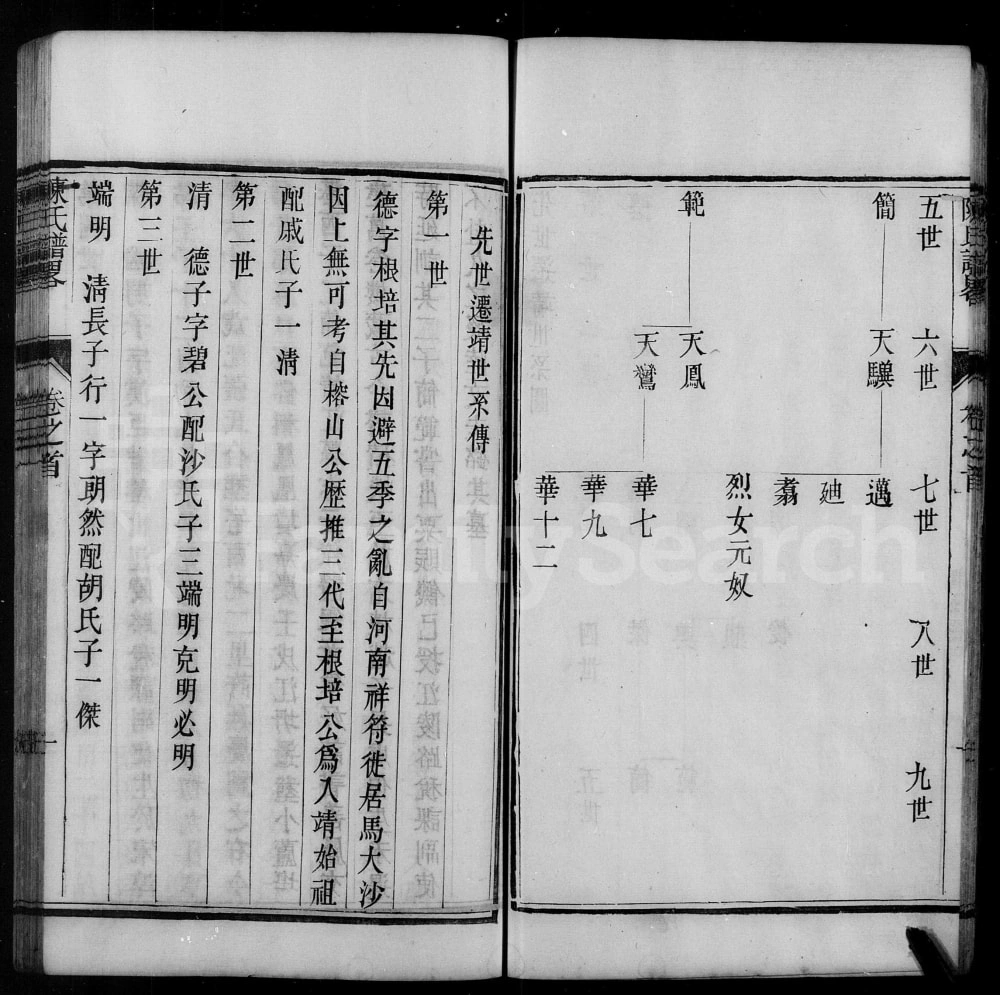 陳氏譜畧 卷之首
五世 六世 七世 八世 九世
簡 天驥 邁
廸
翥
烈女元奴
範 天鳳
天鸞 華七
華九
華十二
先世遷靖世系傳
第一世
德字根培其先因避五季之亂自河南祥符徙居馬大沙
因上無可考自榕山公歷推三代至根培公爲入靖始祖
配戚氏子一清
第二世
清 德子字碧公配沙氏子三端明克明必明
第三世
端明 清長子行一字明然配胡氏子一傑
陳氏譜畧 卷之首
FamilySearch